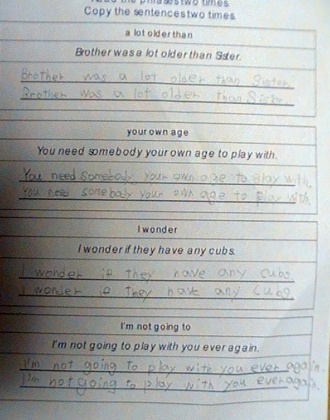 Read the phrases two times
Copy the sentences two times
a lot older than
Brother was a lot older than Sister.
Brother was a lot older than Sister
Brother was a lot older than Sister
your own age
You need somebody your own age to play with.
You need somebody your own age to play with,
You need somebody your own age to play with.
I wonder
I wonder if they have any cubs.
I wonder if they have any cubs
I wonder if they have any cubs
I'm not going to
I'm not going to play with you ever again.
I'm not going to play with you ever again.
I'm not going to play with you ever again.